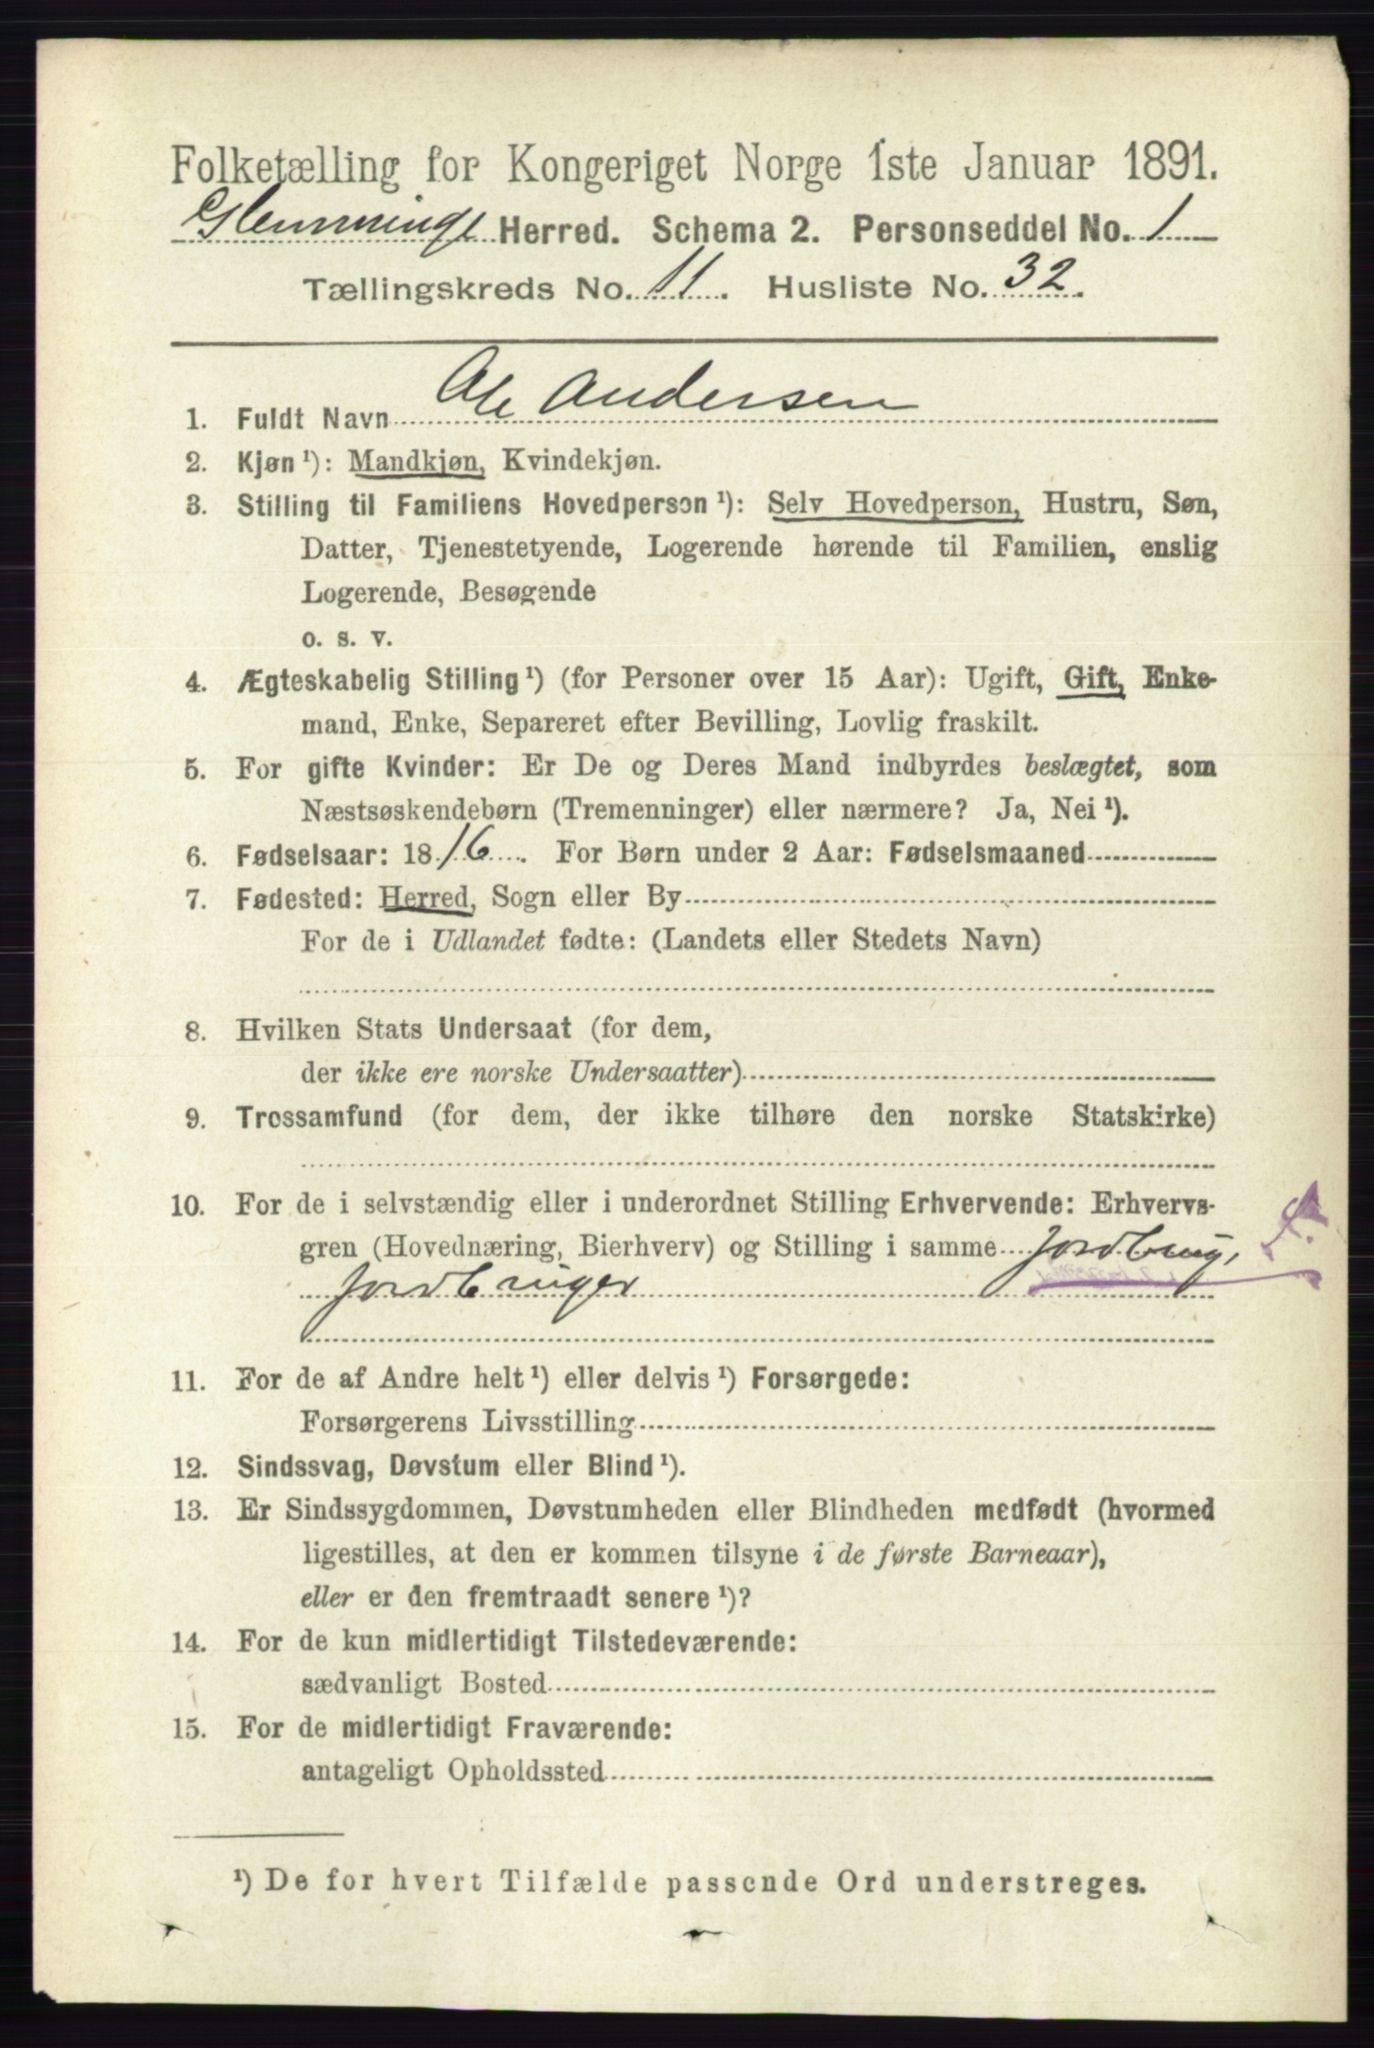 Folketælling for Kongeriget Norge 1ste Januar 1891.
Glemminge Herred. Schema 2. Personseddel No. 1
Tællingskreds No. 11. Husliste No. 32.
1. Fuldt Navn Ole Andersen
2. Kjøn ¹): Mandkjøn, Kvindekjøn.
3. Stilling til Familiens Hovedperson ¹): Selv Hovedperson, Hustru, Søn,
Datter, Tjenestetyende, Logerende hørende til Familien, enslig
Logerende, Besøgende
o. s. v.
4. Ægteskabelig Stilling ¹) (for Personer over 15 Aar): Ugift, Gift, Enke-
mand, Enke, Separeret efter Bevilling, Lovlig fraskilt.
5. For gifte Kvinder: Er De og Deres Mand indbyrdes beslægtet, som
Næstsøskendebørn (Tremenninger) eller nærmere? Ja, Nei ¹).
6. Fødselsaar: 1816. For Børn under 2 Aar: Fødselsmaaned
7. Fødested: Herred, Sogn eller By
For de i Udlandet fødte: (Landets eller Stedets Navn)
8. Hvilken Stats Undersaat (for dem,
der ikke ere norske Undersaatter)
9. Trossamfund (for dem, der ikke tilhøre den norske Statskirke)
10. For de i selvstændig eller i underordnet Stilling Erhvervende: Erhvervs-
gren (Hovednæring, Bierhverv) og Stilling i samme Jordbrug,
Jordbruger
11. For de af Andre helt ¹) eller delvis ¹) Forsørgede:
Forsørgerens Livsstilling
12. Sindssvag, Døvstum eller Blind ¹).
13. Er Sindssygdommen, Døvstumheden eller Blindheden medfødt (hvormed
ligestilles, at den er kommen tilsyne i de første Barneaar),
eller er den fremtraadt senere ¹)?
14. For de kun midlertidigt Tilstedeværende:
sædvanligt Bosted
15. For de midlertidigt Fraværende:
antageligt Opholdssted
¹) De for hvert Tilfælde passende Ord understreges.